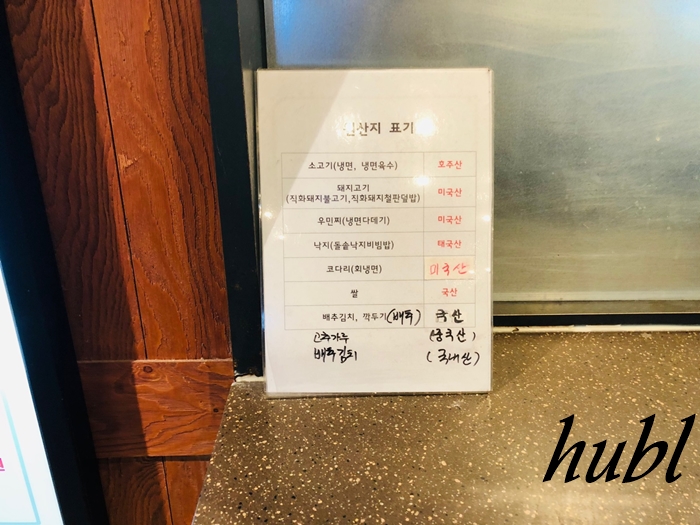 원산지 표기
소고기(냉면, 냉면육수) 호주산
돼지고기
(직화돼지불고기,직화돼지철판덮밥) 미국산
우민찌(냉면다데기) 미국산
낙지(돌솥낙지비빔밥) 태국산
코다리(회냉면) 미국산
쌀 국산
배추김치, 깍두기(배추) 국산
고추가루 (중국산)
배추김치 (국내산)
hubl